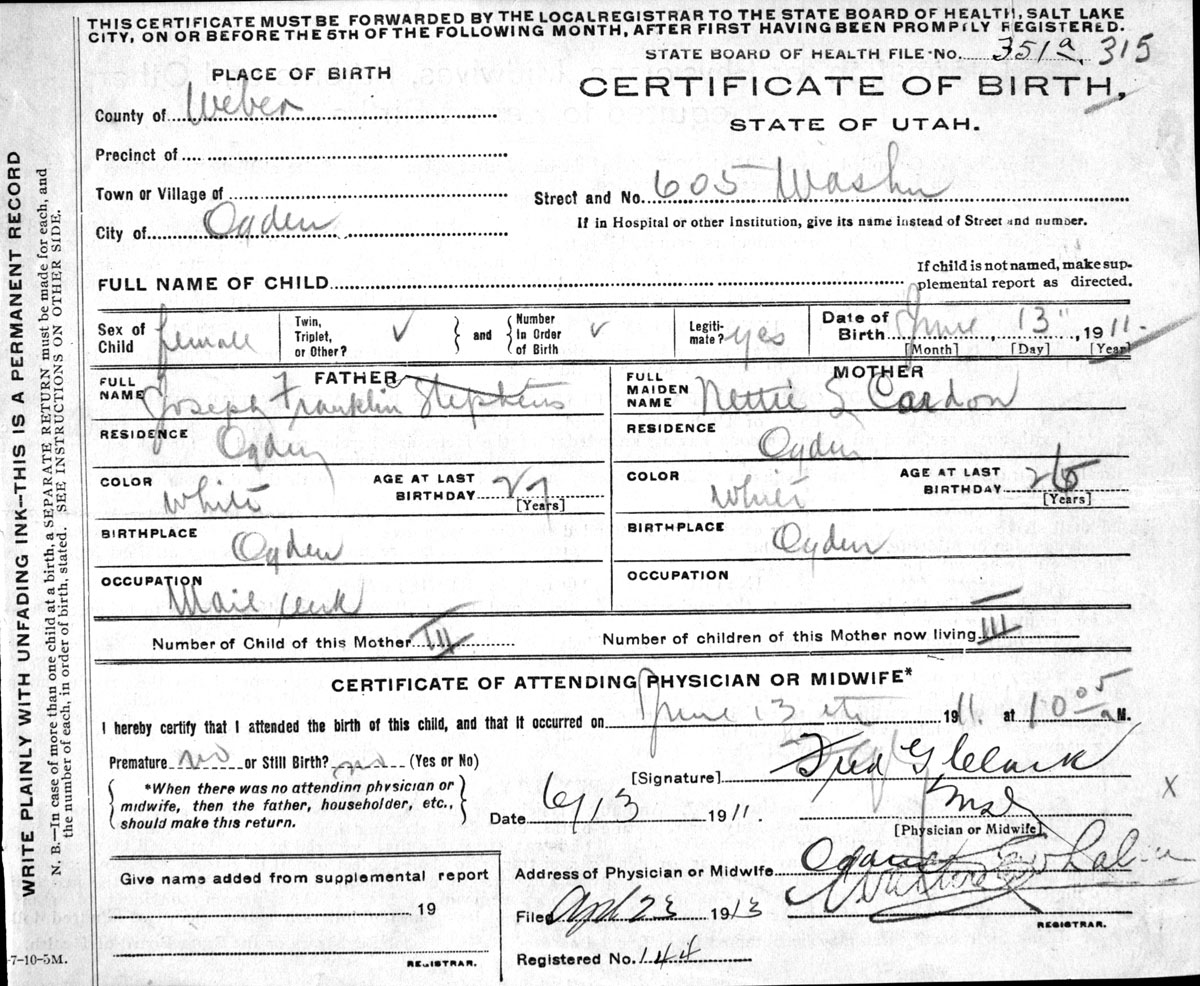 THIS CERTIFICATE MUST BE FORWARDED BY THE LOCALREGISTRAR TO THE STATE BOARD OF HEALTH, SALT LAKE
CITY, ON OR BEFORE THE 5TH OF THE FOLLOWING MONTH, AFTER FIRST HAVING BEEN PROMPTLY REGISTERED.
STATE BOARD OF HEALTH FILE-No. 351a 315
PLACE OF BIRTH
CERTIFICATE OF BIRTH,
STATE OF UTAH.
County of Weber
Precinct of
Town or Village of
Street and No. 605 Washn
City of Ogden
If in Hospital or other Institution, give its name instead of Street and number.
FULL NAME OF CHILD
If child is not named, make sup-
plemental report as directed.
Sex of Child female
Twin, Triplet, or Other? ✓
and
Number In Order of Birth ✓
Legiti-mate? yes
Date of Birth June 13", 1911.
[Month] [Day] [Year]
FATHER
FULL NAME Joseph Franklin Stephens
RESIDENCE Ogden
COLOR White
AGE AT LAST BIRTHDAY 27
[Years]
BIRTHPLACE Ogden
OCCUPATION Mail clerk
MOTHER
FULL MAIDEN NAME Nettie S Cardon
RESIDENCE Ogden
COLOR White
AGE AT LAST BIRTHDAY
[Years]
BIRTHPLACE Ogden
OCCUPATION
Number of Child of this Mother III
Number of children of this Mother now living III
CERTIFICATE OF ATTENDING PHYSICIAN OR MIDWIFE*
I hereby certify that I attended the birth of this child, and that it occurred on June 13th 1911. at 10 05 a M.
Premature no or Still Birth? (Yes or No)
*When there was no attending physician or
midwife, then the father, householder, etc.,
should make this return.
[Signature] Fred G Clark
Date 6/13 1911.
[Physician or Midwife]
Give name added from supplemental report
19
REGISTRAR.
Address of Physician or Midwife Ogden
Filed Apl 23 1913
REGISTRAR.
Registered No. 144
-7-10-5M.
WRITE PLAINLY WITH UNFADING INK—THIS IS A PERMANENT RECORD
N. B.—In case of more than one child at a birth, a SEPARATE RETURN must be made for each, and
the number of each, in order of birth, stated. SEE INSTRUCTIONS ON OTHER SIDE.